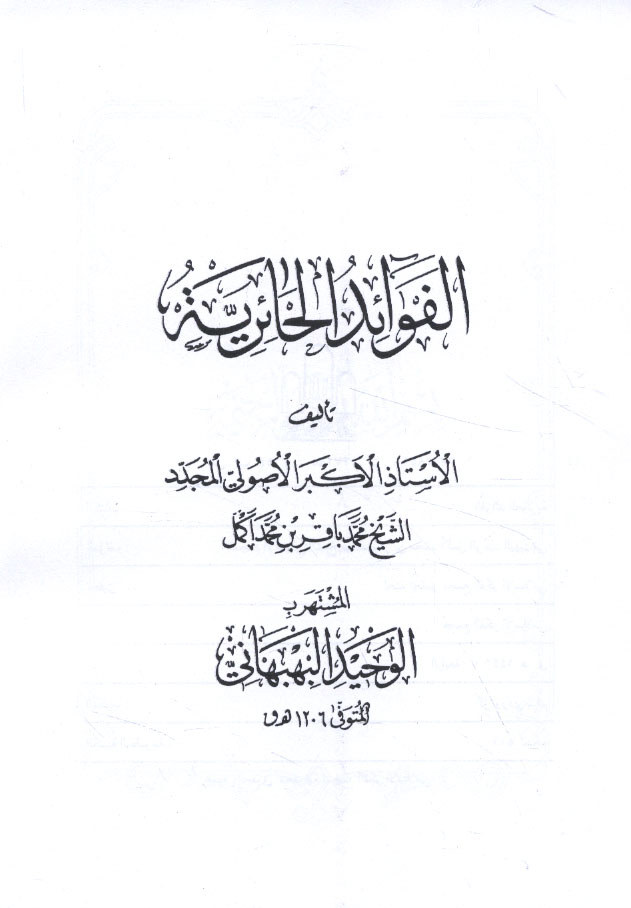 الفَوَائِدُ الحَائِرِيَّةُ
تأليف
الأُسْتَاذِ الأَكْبَرِ الأُصُولِيّ المُجَدِّد
الشَّيْخ مُحَمَّد بَاقِر بْن مُحَمَّد أَكْمَل
المُشْتَهِر بِ
الوَحِيدِ البَهْبَهَانِيّ
المُتَوَفّى ١٢٠٦ هـ ق